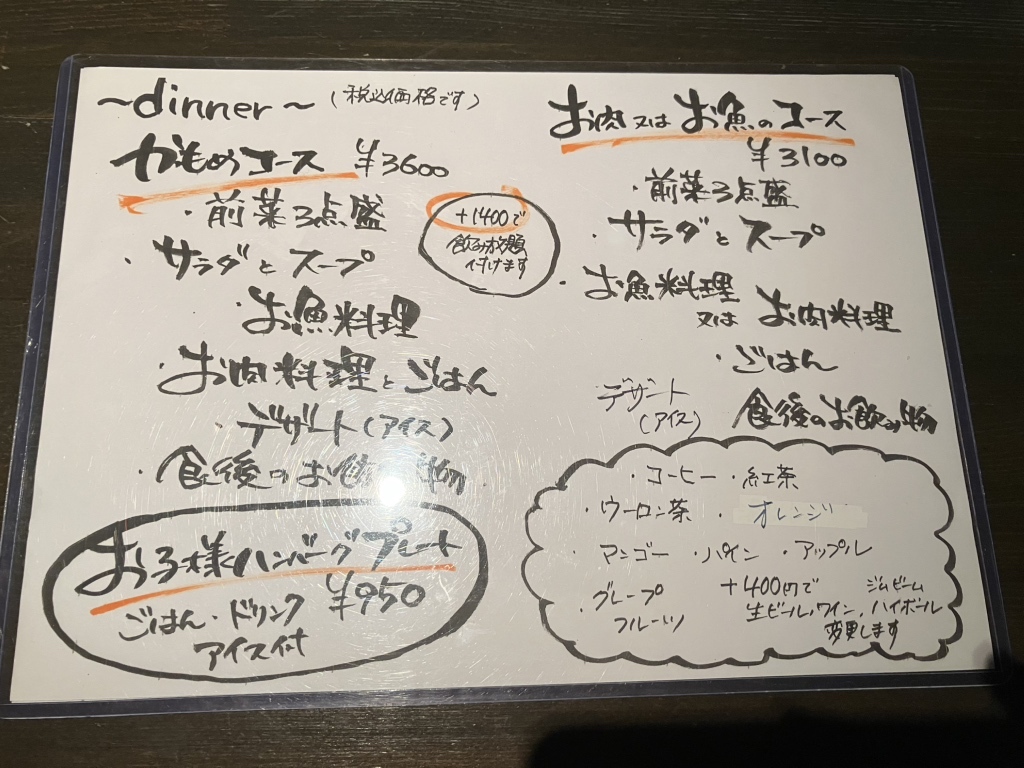 ~dinner~ (税込価格です)
かもめコース ¥3600
・前菜3点盛
・サラダとスープ
お魚料理
お肉料理とごはん
・デザート(アイス)
・食後のお飲み物
+1400で
飲み放題
付けます
お子様ハンバーグプレート
¥950
ごはん・ドリンク
アイス付
お肉又はお魚のコース
¥3100
・前菜3点盛
・サラダとスープ
・お魚料理
又は お肉料理
・ごはん
・デザート
(アイス)
食後のお飲み物
・コーヒー ・紅茶
・ウーロン茶 ・オレンジ
・マンゴー ・パイン ・アップル
・グレープ
フルーツ
+400円で ジムビーム
生ビール,ワイン,ハイボール
変更します